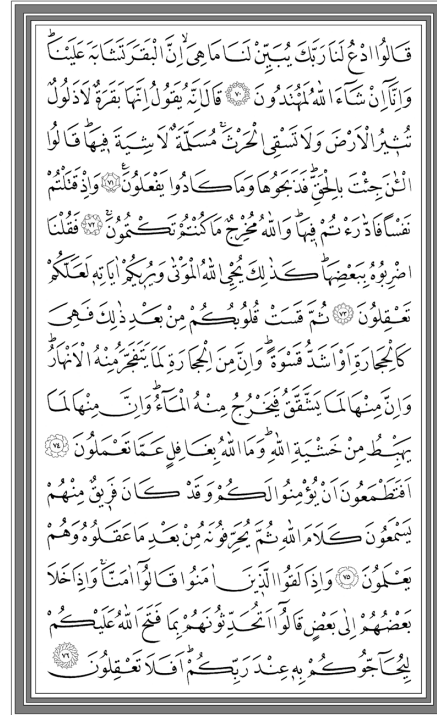 قَالُوا ادْعُ لَنَا رَبَّكَ يُبَيِّنْ لَنَا مَا هِيَۙ اِنَّ الْبَقَرَ تَشَابَهَ عَلَيْنَاۜ
وَاِنَّٓا اِنْ شَٓاءَ اللّٰهُ لَمُهْتَدُونَ ﴿٧٠﴾ قَالَ اِنَّهُ يَقُولُ اِنَّهَا بَقَرَةٌ لَا ذَلُولٌ
تُث۪يرُ الْاَرْضَ وَلَا تَسْقِي الْحَرْثَۚ مُسَلَّمَةٌ لَا شِيَةَ ف۪يهَاۜ قَالُوا
الْـٰٔنَ جِئْتَ بِالْحَقِّۜ فَذَبَحُوهَا وَمَا كَادُوا يَفْعَلُونَ۟ ﴿٧١﴾ وَاِذْ قَتَلْتُمْ
نَفْسًا فَادّٰرَءْتُمْ ف۪يهَاۜ وَاللّٰهُ مُخْرِجٌ مَا كُنْتُمْ تَكْتُمُونَۚ ﴿٧٢﴾ فَقُلْنَا
اضْرِبُوهُ بِبَعْضِهَاۜ كَذٰلِكَ يُحْيِ اللّٰهُ الْمَوْتٰى وَيُر۪يكُمْ اٰيَاتِه۪ لَعَلَّكُمْ
تَعْقِلُونَ ﴿٧٣﴾ ثُمَّ قَسَتْ قُلُوبُكُمْ مِنْ بَعْدِ ذٰلِكَ فَهِيَ
كَالْحِجَارَةِ اَوْ اَشَدُّ قَسْوَةًۜ وَاِنَّ مِنَ الْحِجَارَةِ لَمَا يَتَفَجَّرُ مِنْهُ الْاَنْهَارُۜ
وَاِنَّ مِنْهَا لَمَا يَشَّقَّقُ فَيَخْرُجُ مِنْهُ الْمَٓاءُۜ وَاِنَّ مِنْهَا لَمَا
يَهْبِطُ مِنْ خَشْيَةِ اللّٰهِۜ وَمَا اللّٰهُ بِغَافِلٍ عَمَّا تَعْمَلُونَ ﴿٧٤﴾
اَفَتَطْمَعُونَ اَنْ يُؤْمِنُوا لَكُمْ وَقَدْ كَانَ فَر۪يقٌ مِنْهُمْ
يَسْمَعُونَ كَلَامَ اللّٰهِ ثُمَّ يُحَرِّفُونَهُ مِنْ بَعْدِ مَا عَقَلُوهُ وَهُمْ
يَعْلَمُونَ ﴿٧٥﴾ وَاِذَا لَقُوا الَّذ۪ينَ اٰمَنُوا قَالُٓوا اٰمَنَّاۚ وَاِذَا خَلَا
بَعْضُهُمْ اِلٰى بَعْضٍ قَالُٓوا اَتُحَدِّثُونَهُمْ بِمَا فَتَحَ اللّٰهُ عَلَيْكُمْ
لِيُحَٓاجُّوكُمْ بِه۪ عِنْدَ رَبِّكُمْۜ اَفَلَا تَعْقِلُونَ ﴿٧٦﴾